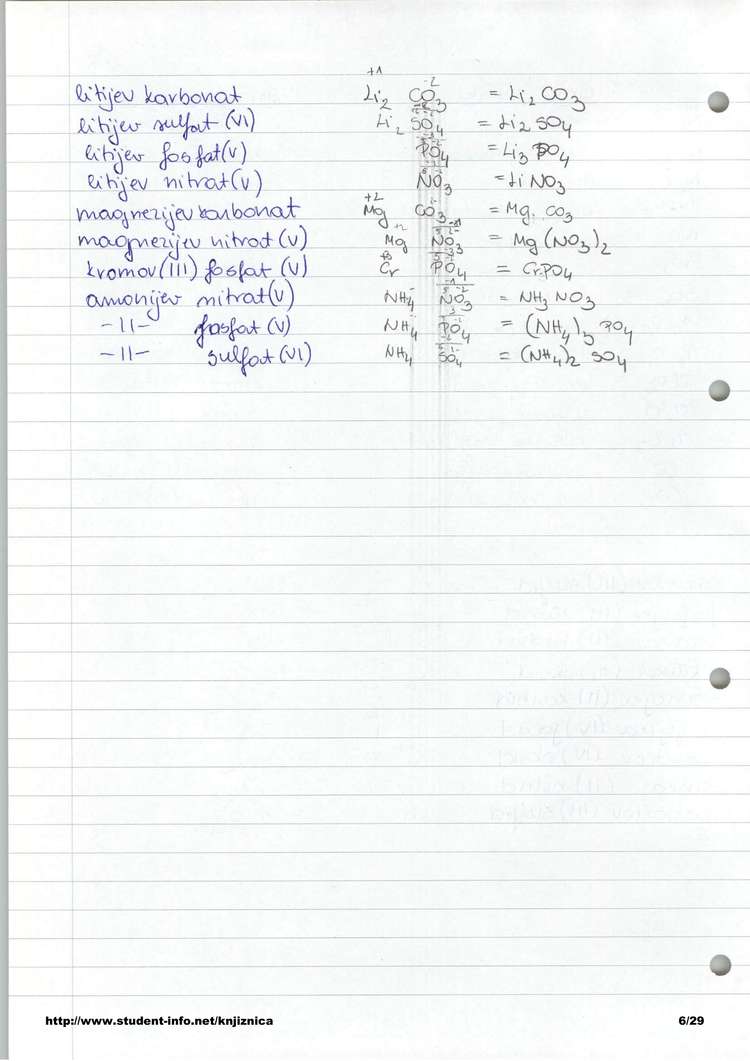 litijev karbonat Li₂ CO₃ = Li₂ CO₃
litijev sulfat (VI) Li₂ SO₄ = Li₂ SO₄
litijev fosfat (V) PO₄ = Li₃ PO₄
litijev nitrat (V) NO₃ = Li NO₃
magnezijev karbonat Mg CO₃ = Mg CO₃
magnezijev nitrat (V) Mg NO₃ = Mg (NO₃)₂
kromov (III) fosfat (V) Cr PO₄ = CrPO₄
amonijev nitrat (V) NH₄ NO₃ = NH₃ NO₃
-||- fosfat (V) NH₄ PO₄ = (NH₄)₃ PO₄
-||- sulfat (VI) NH₄ SO₄ = (NH₄)₂ SO₄
http://www.student-info.net/knjiznica 6/29